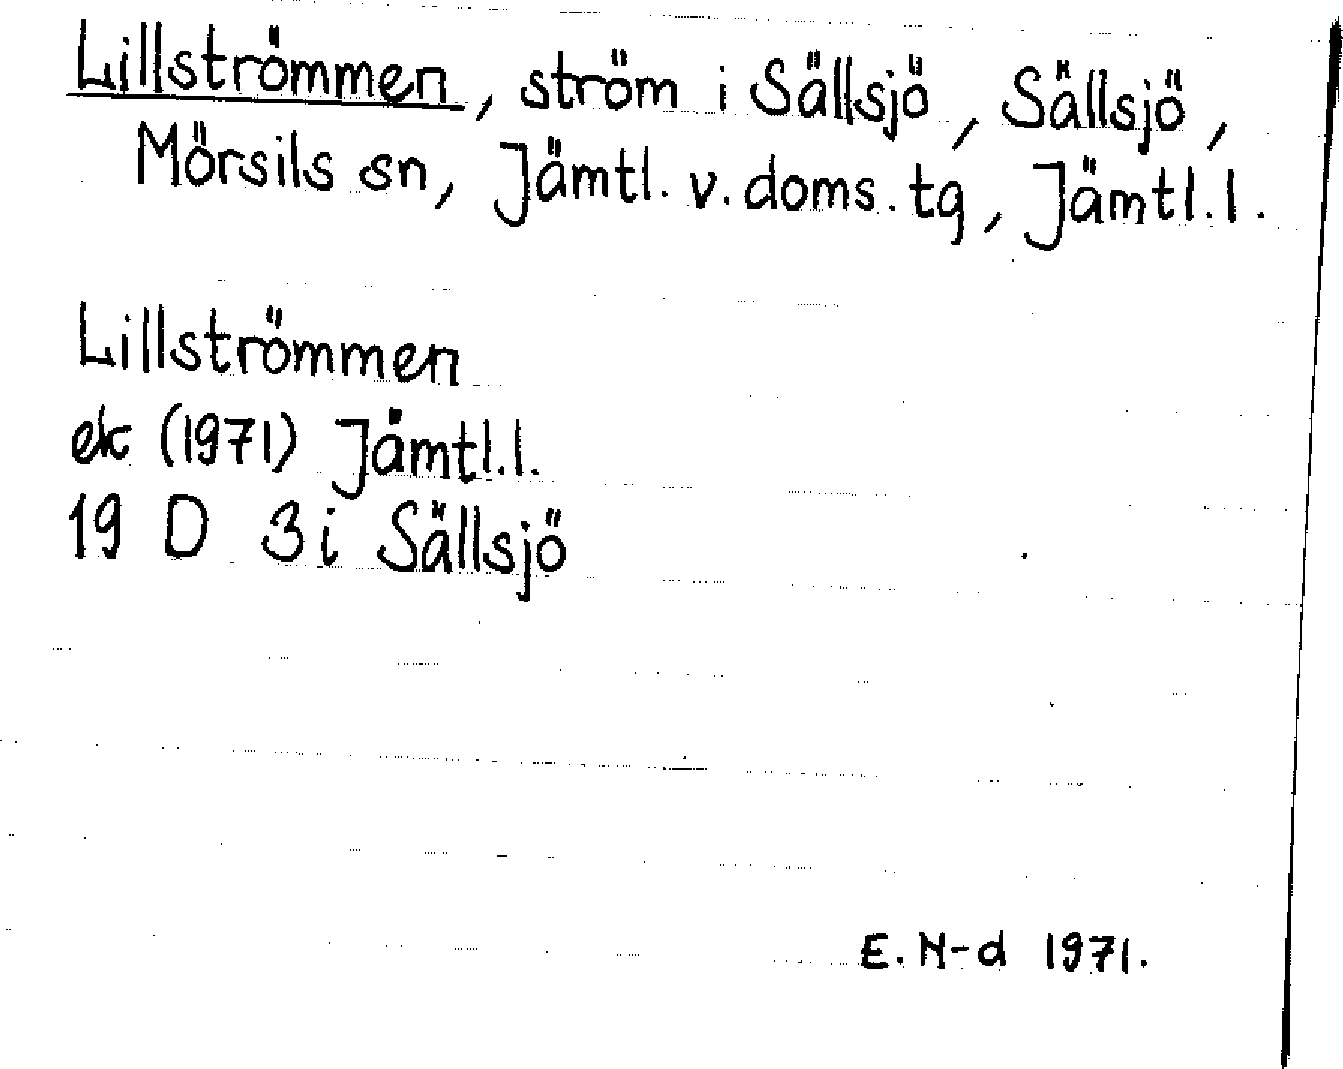 Lillströmmen, ström i Sällsjö, Sällsjö,
Mörsils sn, Jämtl. v. doms. tg, Jämtl. l.
Lillströmmen
ek (1971) Jämtl. l.
19 D 3i Sällsjö
E. N-d 1971.